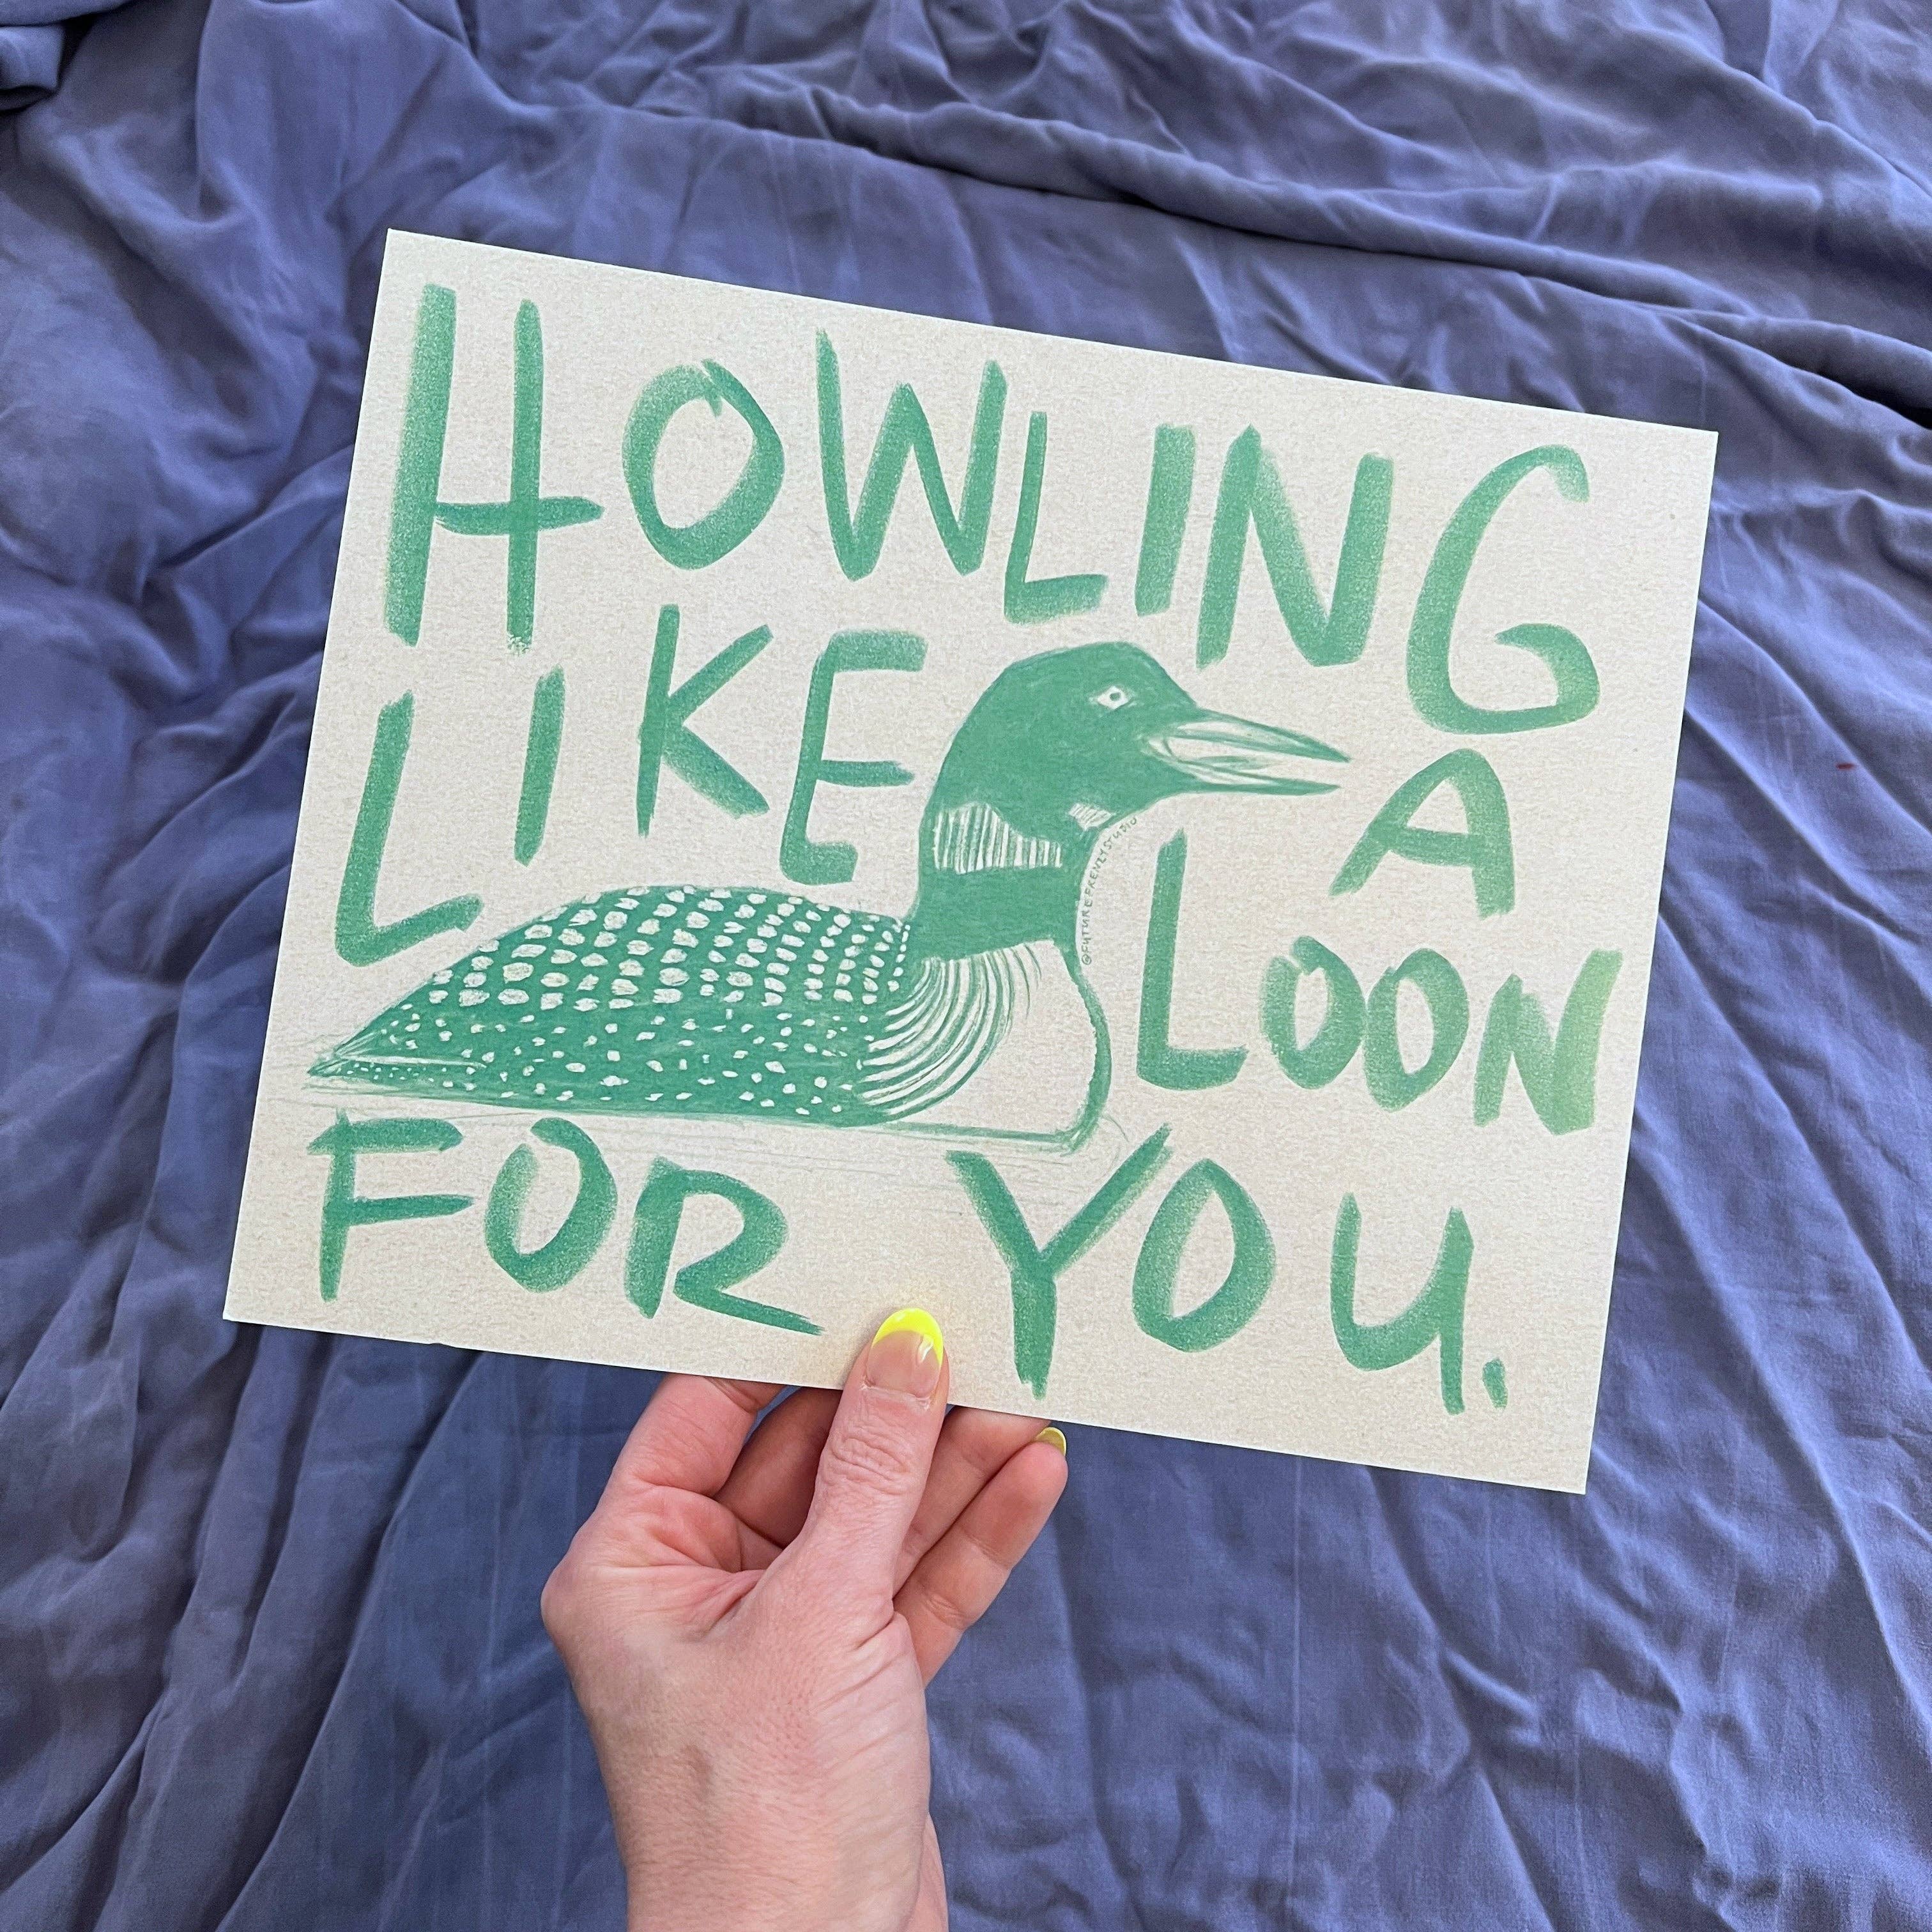 HOWLING
LIKE A
LOON
FOR YOU.
@FUTUREFRENZYSTUDIO